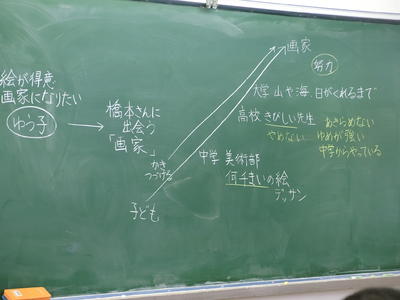 絵が得意
画家になりたい
ゆう子
橋本さんに
出会う
「画家」
かき
つづける
子ども
画家
努力
大学 山や海 日がくれるまで
高校 きびしい先生 あきらめない
やめない ゆめが強い
中学からやっている
中学 美術部
何千まいの絵
デッサン